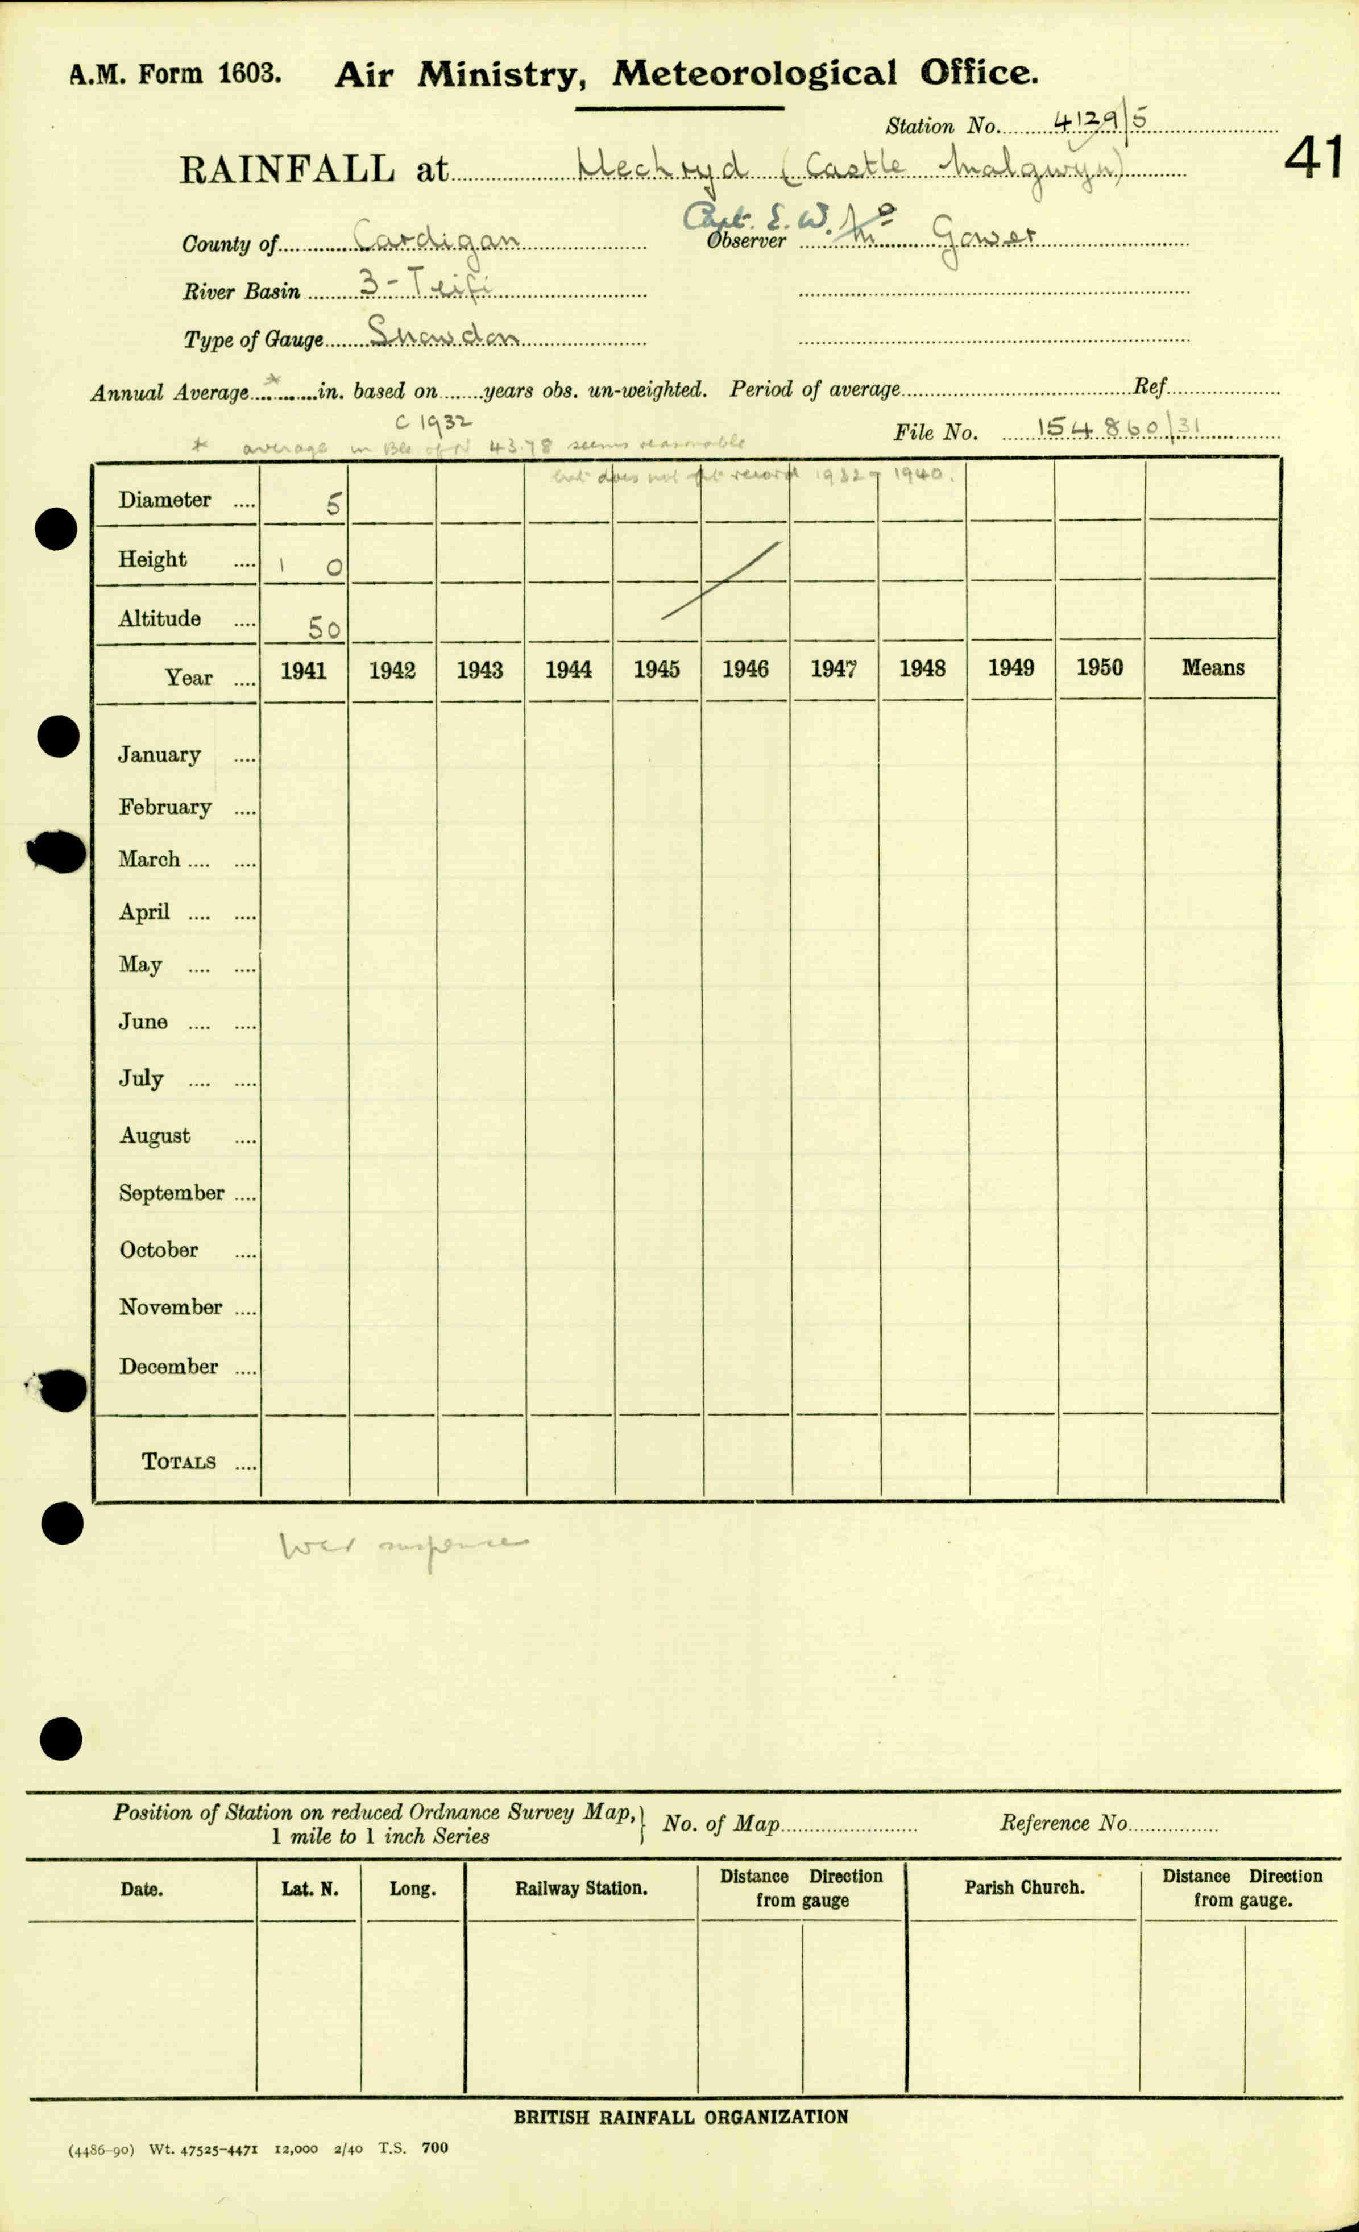 A.M. Form 1603. Air Ministry, Meteorological Office.
Station No. 4129/5
41
RAINFALL at Llechryd (Castle Malgwyn)
Capt. E. W.
County of Cardigan Observer Gower
River Basin 3-Teifi
Type of Gauge Snowdon
Annual Average * in. based on years obs. un-weighted. Period of average Ref
C 1932
File No. 154860/31
* average in 43.78 seems reasonable
but does not fit record 1932-1940.
Diameter .... 5
Height .... 1 0
Altitude .... 50
Year .... 1941 1942 1943 1944 1945 1946 1947 1948 1949 1950 Means
January ....
February ....
March .... ....
April .... ....
May .... ....
June .... ....
July .... ....
August ....
September ....
October ....
November ....
December ....
TOTALS ....
War suspense
Position of Station on reduced Ordnance Survey Map, } No. of Map Reference No.
1 mile to 1 inch Series
Date. Lat. N. Long. Railway Station. Distance Direction from gauge Parish Church. Distance Direction from gauge.
BRITISH RAINFALL ORGANIZATION
(4486-90) Wt. 47525-4471 12,000 2/40 T.S. 700